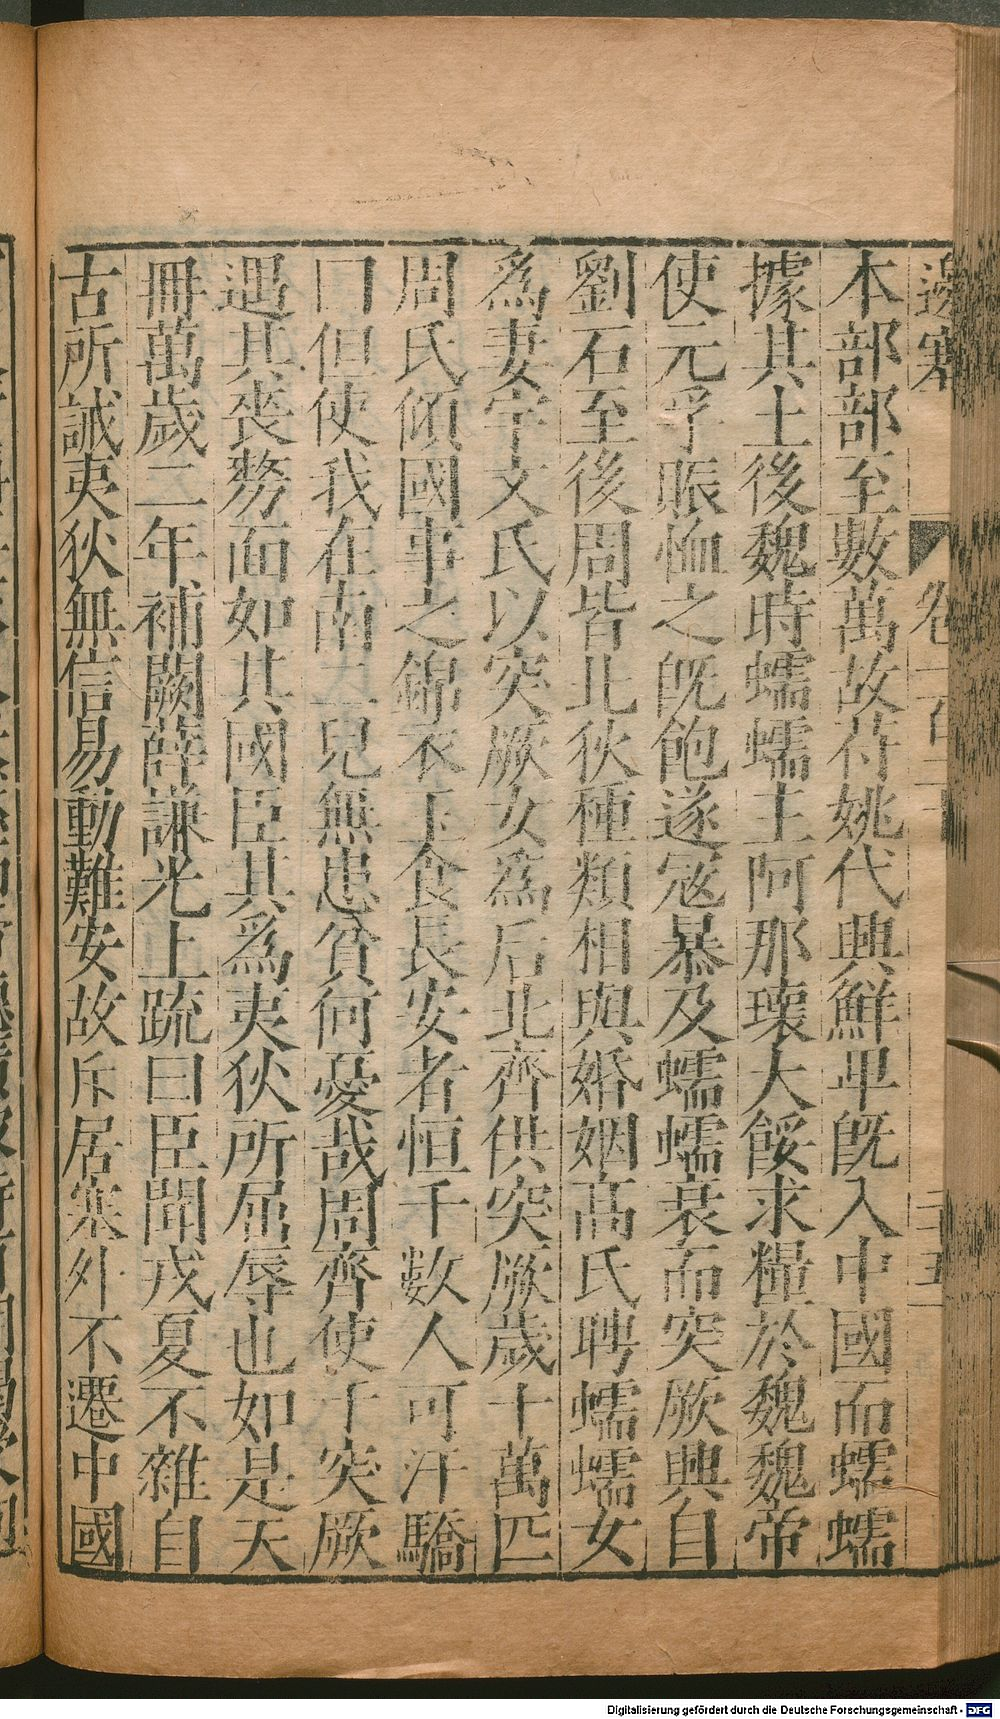 邊塞 卷一百二十 三十五
本部部至數萬故苻姚代興鮮卑旣入中國而蠕蠕
據其土後魏時蠕蠕主阿那瓌大餒求糧於魏魏帝
使元孚賑恤之旣飽遂冦暴及蠕蠕衰而突厥興自
劉石至後周皆北狄種類相與婚姻高氏聘蠕蠕女
爲妻宇文氏以突厥女爲后北齊供突厥歲十萬匹
周氏傾國事之錦衣玉食長安者恒千數人可汗驕
曰但使我在南二兒無患貧何憂哉周齊使于突厥
遇其喪剺面如其國臣其爲夷狄所屈辱也如是天
冊萬歲二年補闕薛謙光上疏曰臣聞戎夏不雜自
古所誡夷狄無信易動難安故斥居塞外不遷中國
Digitalisierung gefördert durch die Deutsche Forschungsgemeinschaft - DFG